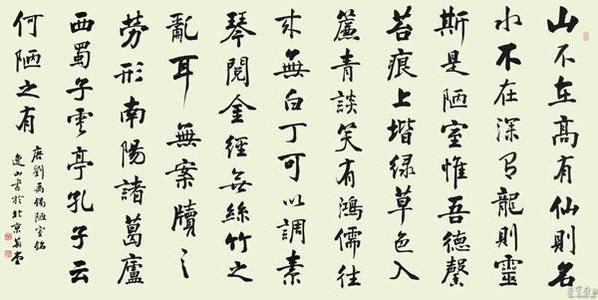 山不在高有仙則名
水不在深有龍則靈
斯是陋室惟吾德馨
苔痕上堦綠草色入
簾青談笑有鴻儒往
来無白丁可以調素
琴閱金經無絲竹之
亂耳無案牘之
勞形南陽諸葛廬
西蜀子雲亭孔子云
何陋之有
唐劉禹錫陋室銘
逸山書於北京